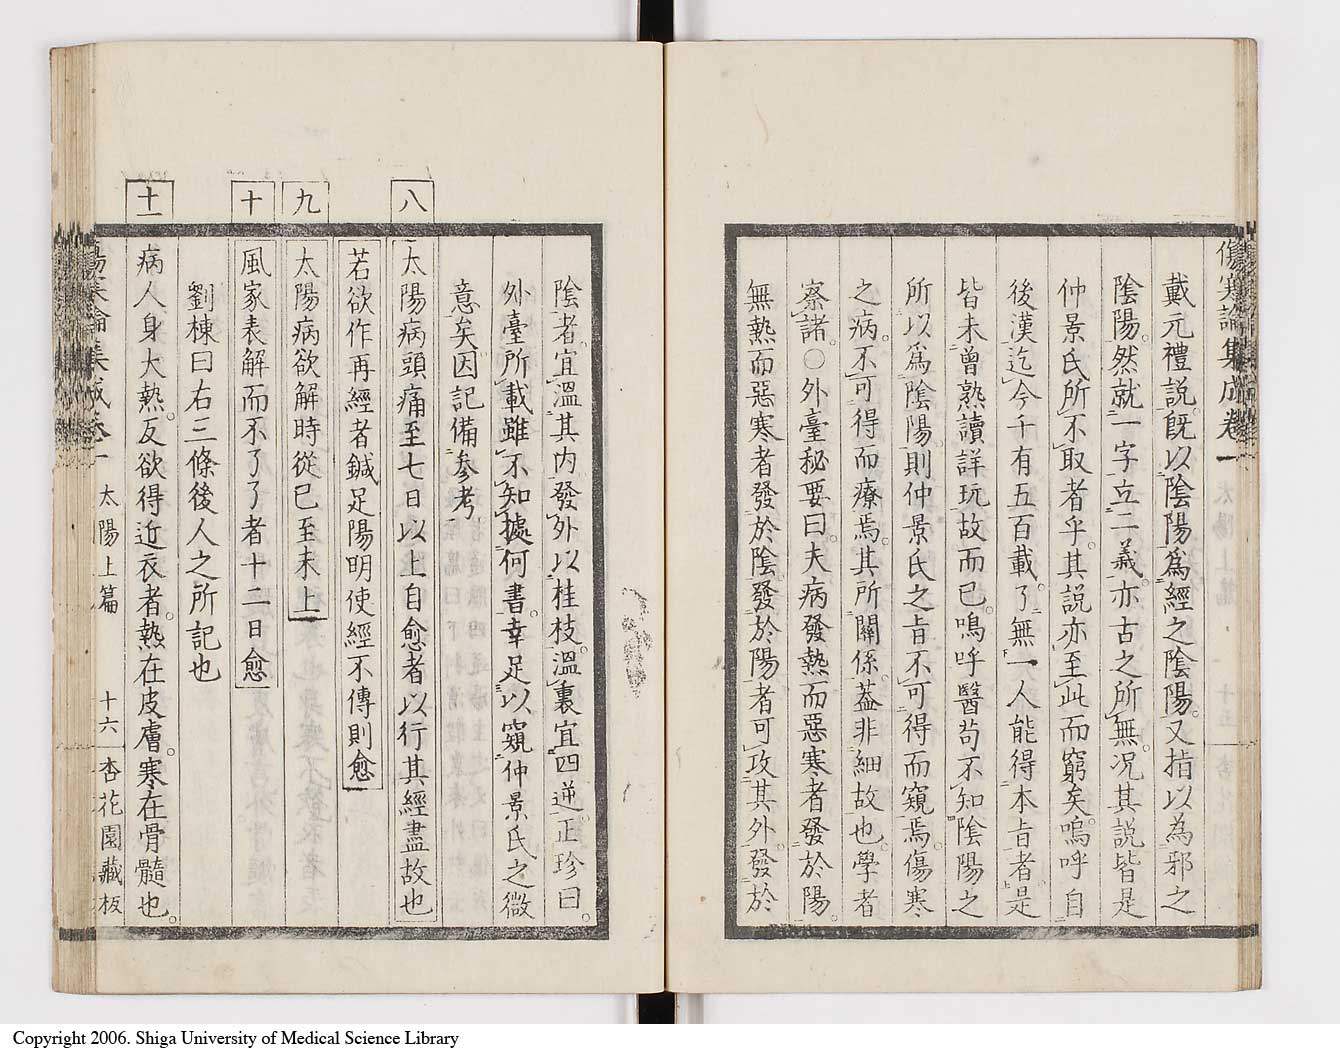 傷寒論集成卷一
戴元禮説既以陰陽爲經之陰陽又指以為邪之
陰陽然就一字立二義亦古之所無況其説皆是
仲景氏所不取者乎其説亦至此而窮矣嗚呼自
後漢迄今千有五百載了無一人能得本旨者是
皆未曾熟讀詳玩故而已嗚呼醫苟不知陰陽之
所以爲陰陽則仲景氏之旨不可得而窺焉傷寒
之病不可得而療焉其所關係蓋非細故也學者
察諸〇外臺秘要曰夫病發熱而惡寒者發於陽
無熱而惡寒者發於陰發於陽者可攻其外發於
陰者宜溫其内發外以桂枝溫裏宜四逆正珍曰
外臺所載雖不知據何書幸足以窺仲景氏之微
意矣因記備参考
八
太陽病頭痛至七日以上自愈者以行其經盡故也
若欲作再經者鍼足陽明使經不傳則愈
九
太陽病欲解時從巳至未上
十
風家表解而不了了者十二日愈
劉棟曰右三條後人之所記也
十一
病人身大熱反欲得近衣者熱在皮膚寒在骨髓也
傷寒論集成卷一 太陽上篇 十六 杏花園藏板
Copyright 2006. Shiga University of Medical Science Library